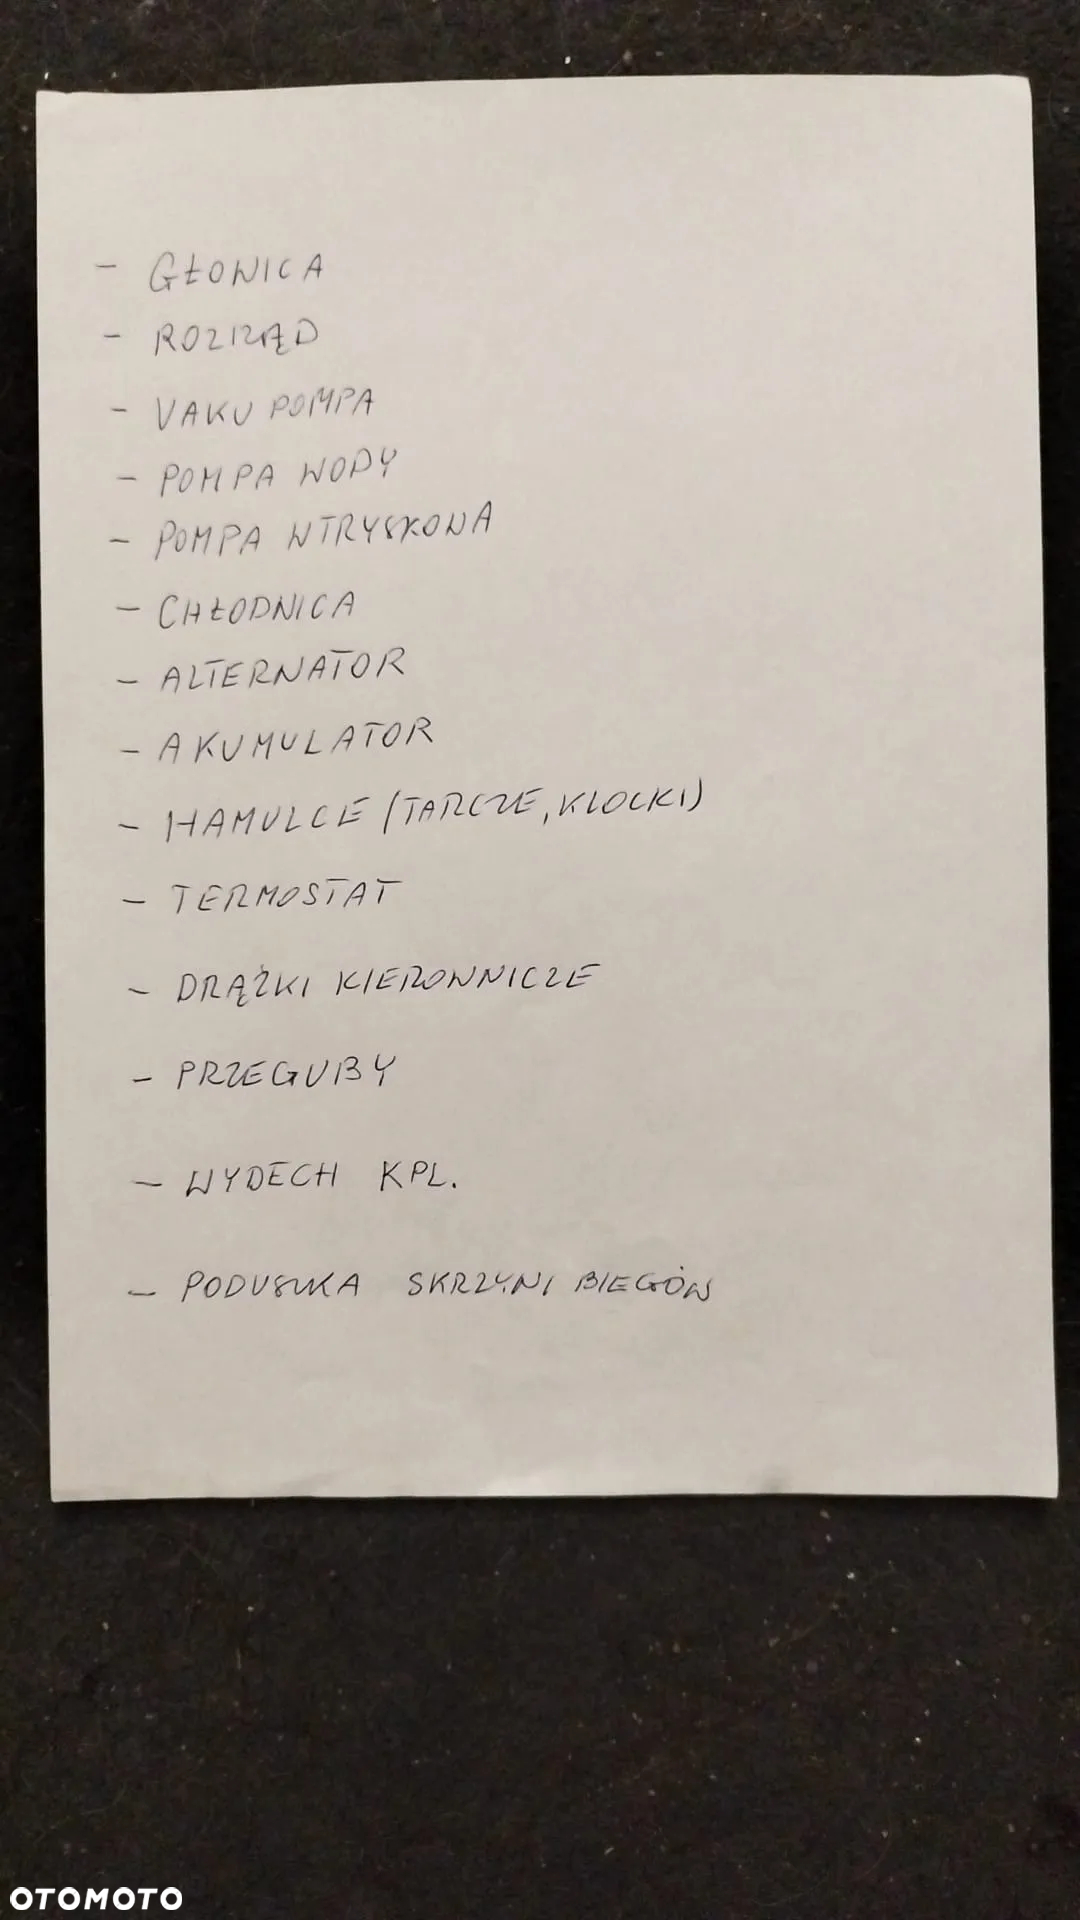 - GŁOWICA
- ROZRZĄD
- VAKU POMPA
- POMPA WODY
- POMPA WTRYSKOWA
- CHŁODNICA
- ALTERNATOR
- AKUMULATOR
- HAMULCE (TARCZE, KLOCKI)
- TERMOSTAT
- DRĄŻKI KIEROWNICZE
- PRZEGUBY
- WYDECH KPL.
- PODUSZKA SKRZYNI BIEGÓW
OTOMOTO